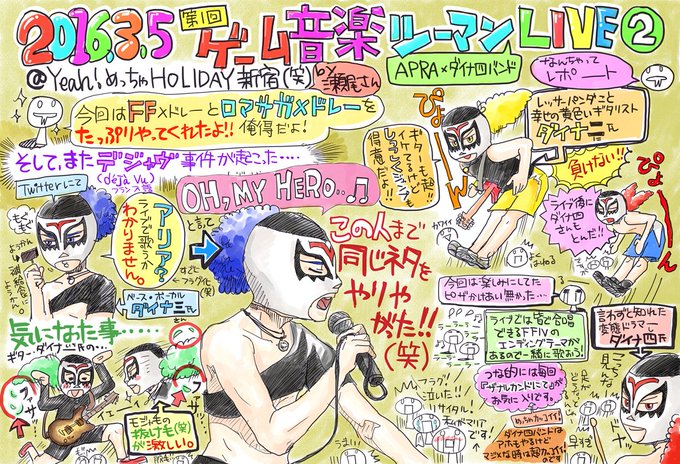 2016.3.5 第1回 ゲーム音楽ツーマンLIVE②
@Yeah!めっちゃHOLIDAY新宿(笑)
APRA×ダイナ四バンド
なんちゃってレポート
今回はFF×ドレーとロマサガ×ドレーを
たっぷりやってくれたよ!!俺得だよ!
そして、またデジャヴ事件が起こった....
(déjà vu)
フランス語
Twitterにて
もぐもぐ
ようかん
アリア?
ライブで歌うか
わかりません。
と言って
OH, MY HERO..♫
すでに
フラグだ
(笑)
ベース・ボーカル
ダイナ三氏
この人まで
同じネタを
やりや
がった!!
(笑)
ぴょーん
ギターも超!!
イケてるけど
しょっちゅうジャンプも
得意だよ!
レッサーパンダこと
幸せの黄色いギタリスト
ダイナ二氏
負けない!!
ライブ後に
ダイナ四
さんも
とんだ!!
ぴょーん
よく
はねる
今回は楽しみにしてた
ピザかけあい無かった...
ラーラーラー
ライブでは皆で合唱
できるFFⅣの
エンディングテーマが
あるので一緒に歌おう!
言わずと知れた
変態ドラマー
ダイナ四氏
つな的には毎回
『ダナルカンドにて』が
お気に入りです。
気になった事......
ギター・ダイナ二氏の...
モジャ毛の
抜け毛(笑)
が激しい。
フラグ!
泣いた!!
リサイタル!
私がマリア
です!
めっちゃカッコイイ!!
ダイナ四バンドは
アホもやるけど
マジメな時は超カッコイイ
のです
見ろ〜な